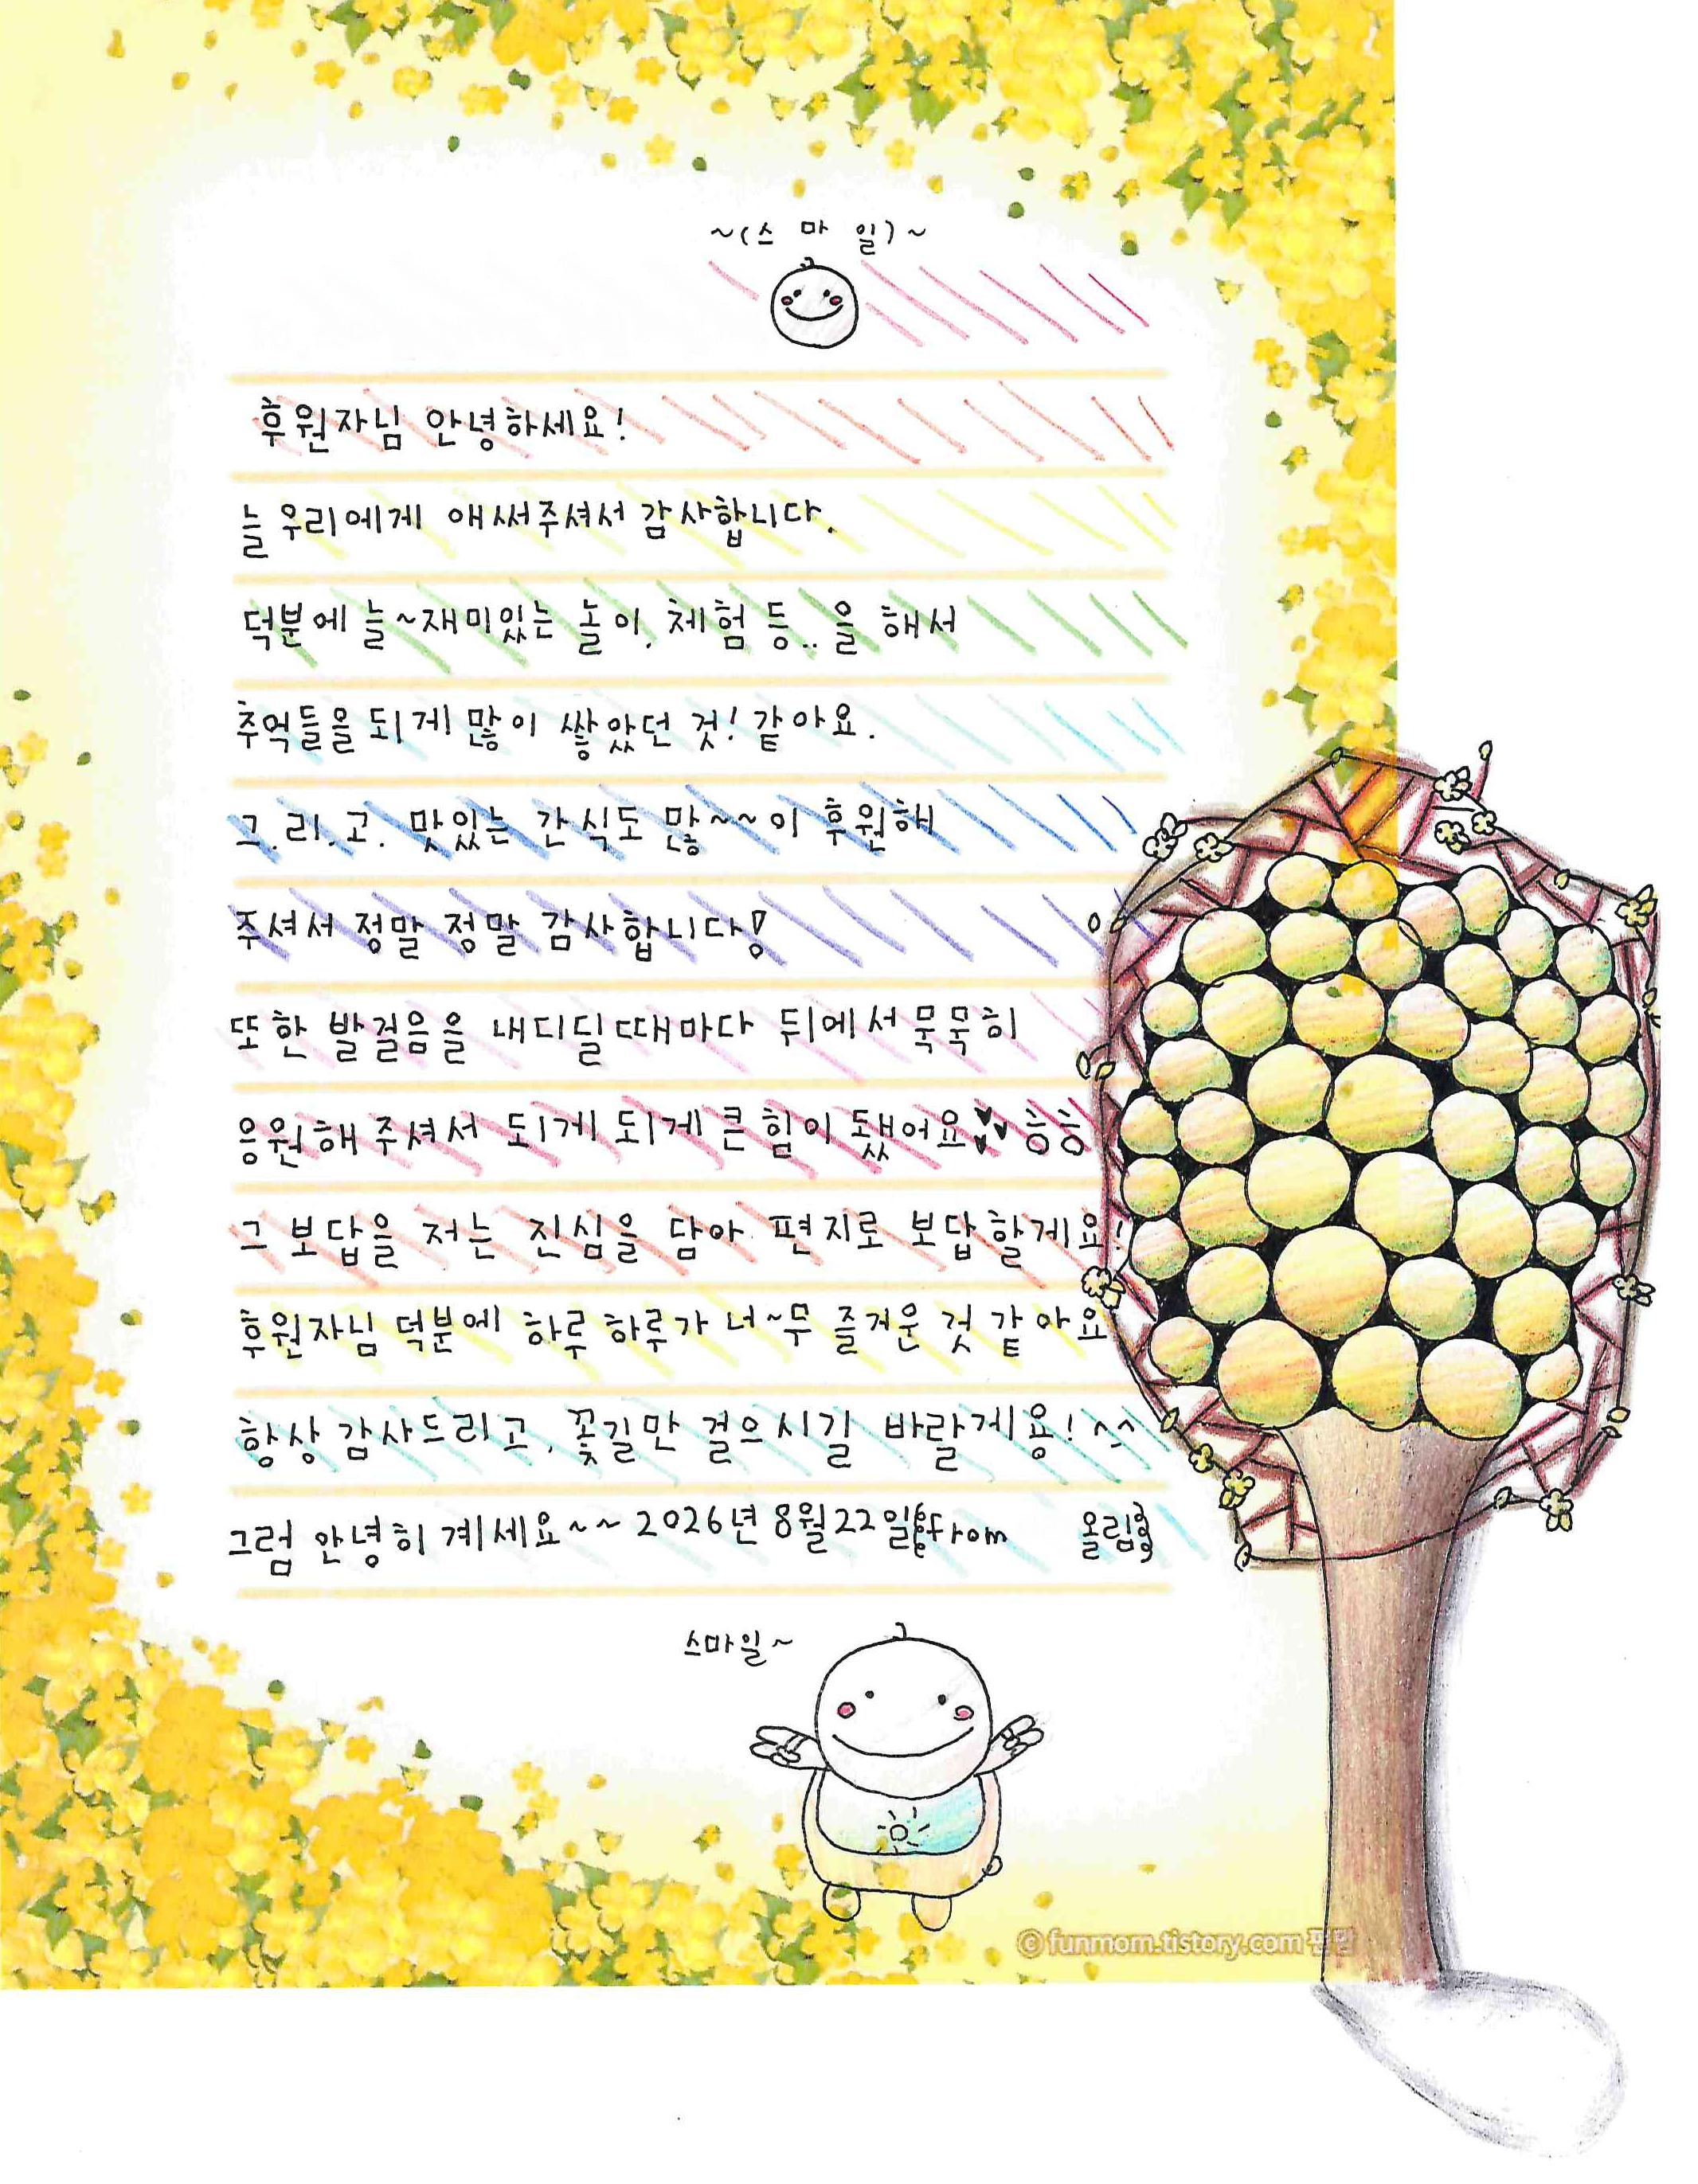 ~(스 마 일)~
후원자님 안녕하세요!
늘 우리에게 애써주셔서 감사합니다.
덕분에 늘~재미있는 놀이, 체험 등..을 해서
추억들을 되게 많이 쌓았던 것! 같아요.
그.리.고. 맛있는 간식도 많~~이 후원해
주셔서 정말 정말 감사합니다!
또한 발걸음을 내디딜때마다 뒤에서 묵묵히
응원해 주셔서 되게 되게 큰 힘이 됐어요♥♥♥ 흐흐
그 보답을 저는 진심을 담아 편지로 보답할게요!
후원자님 덕분에 하루하루가 너~무 즐거운 것 같아요
항상 감사드리고, 꽃길만 걸으시길 바랄게용! ^^
그럼 안녕히 계세요~~ 2026년 8월 22일 from 올림
스마일~
© funmom.tistory.com